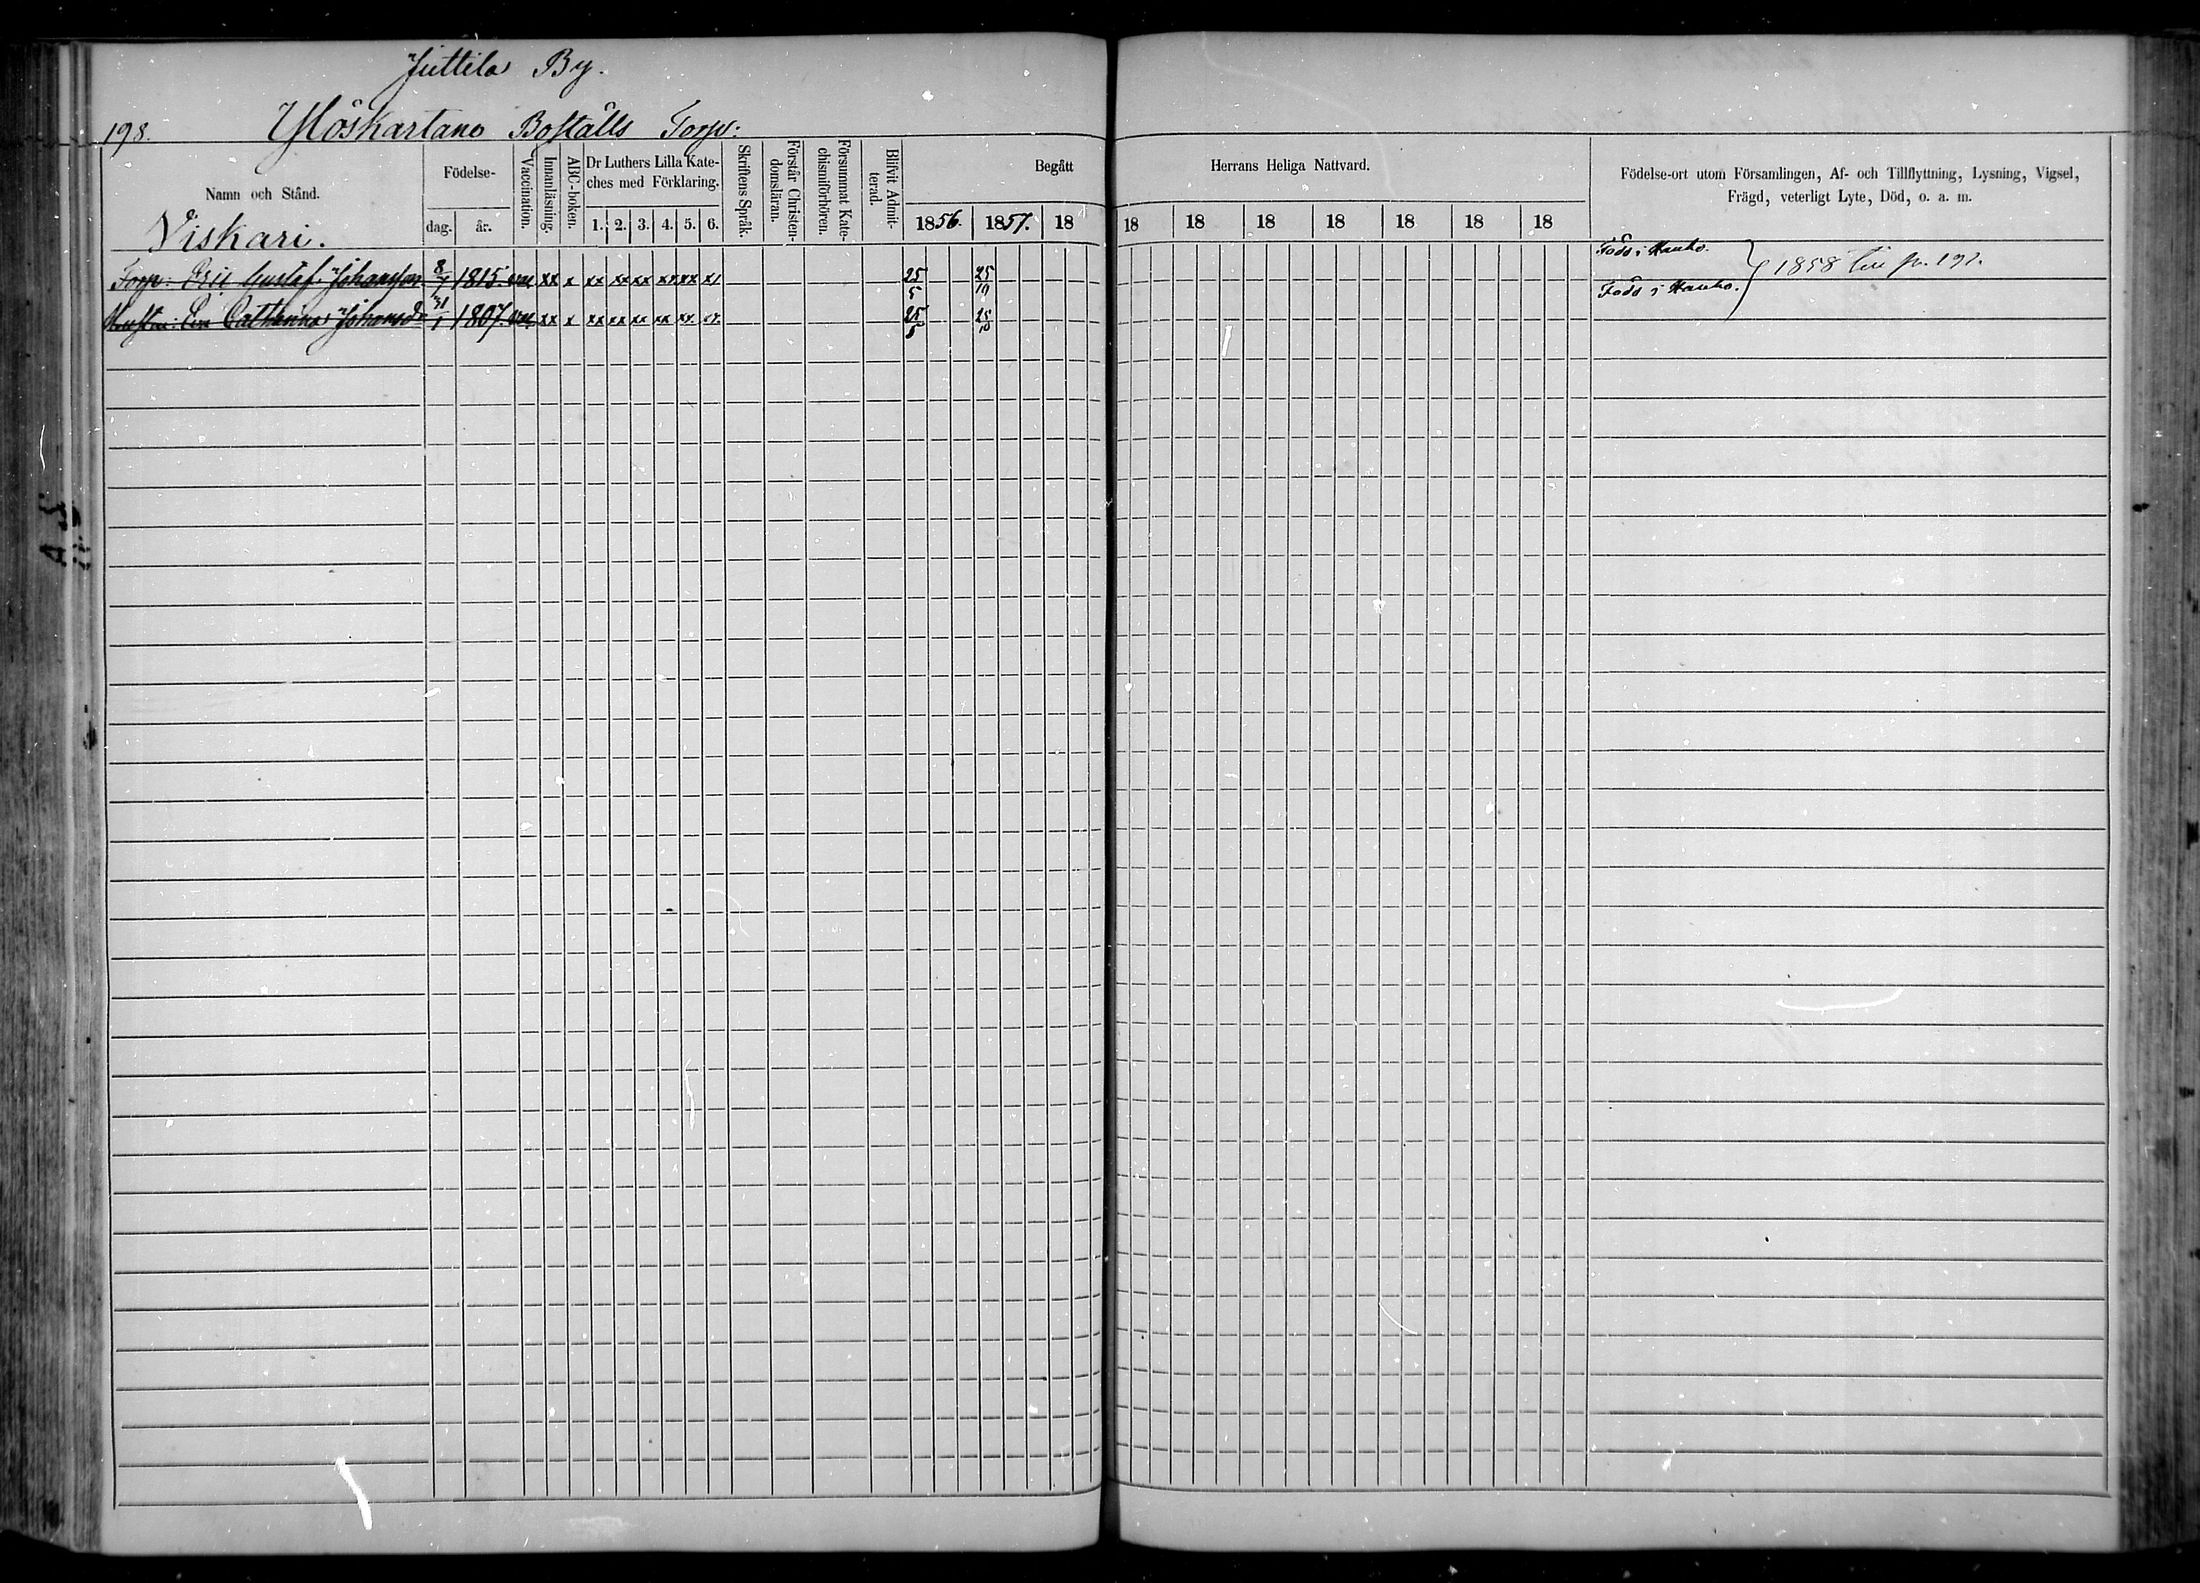 Juttila By.
198. Ylöskartano Boställs Torp:
Namn och Stånd.
Födelse-
dag. år.
Vaccination.
Innanläsning.
ABC-boken.
Dr Luthers Lilla Kate-
ches med Förklaring.
1. 2. 3. 4. 5. 6.
Skriftens Språk.
Förstår Christen-
domsläran.
Försummat Kate-
chismiförhören.
Blifvit Admit-
terad.
Begått Herrans Heliga Nattvard.
1856. 1857. 18 18 18 18 18 18 18 18
Födelse-ort utom Församlingen, Af- och Tillflyttning, Lysning, Vigsel,
Frägd, veterligt Lyte, Död, o. a. m.
Viskari.
Torp: Eric Gustaf Johansson 8/7 1815 xx x xx xx xx xx xx x1 25/5 25/10 Född i Hauho.
Hustru: Catharina Johansdr 31/1 1807. xx x xx xx xx xx xx 25/5 25/10 Född i Hauho.
1858 till p. 191.